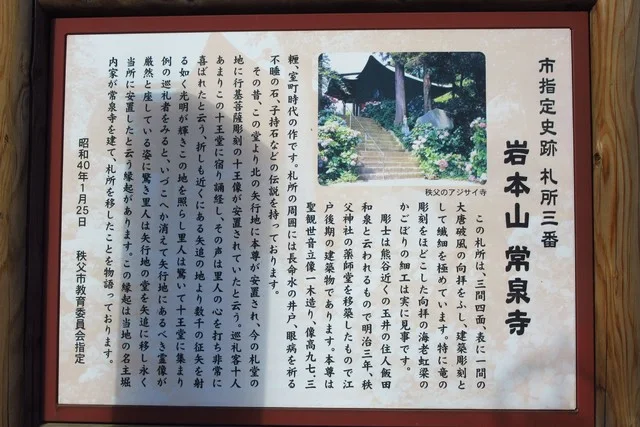 市指定史跡 札所三番
岩本山 常泉寺
この札所は、三間四面、表に一間の
大唐破風の向拝をふし、建築彫刻と
して繊細を極めています。特に竜の
彫刻をほどこした向拝の海老虹梁の
かごぼりの細工は実に見事です。
彫士は熊谷近くの玉井の住人飯田
和泉と云われるもので明治三年、秩
父神社の薬師堂を移築したもので江
戸後期の建築物であります。本尊は
聖観世音立像一木造り、像高九七．三
糎、室町時代の作です。札所の周囲には長命水の井戸、眼病を祈る
不睡の石、子持石などの伝説を持っております。
その昔、この堂より北の矢行地に本尊が安置され、今の札堂の
地に行基菩薩彫刻の十王像が安置されていたと云う。巡礼客十人
あまりこの十王堂に宿り誦経し、その声は里人の心を打ち非常に
喜ばれたと云う、折しも近くにある矢追の地より数千の征矢を射
る如く光明が輝きこの地を照らし里人は驚いて十王堂に集まり
例の巡礼者をみると、いづこへか消えて矢行地にあるべき霊像が
厳然と座している姿に驚き里人は矢行地の堂を矢追に移し永く
当所に安置したと云う縁起があります。この縁起は当地の名主堀
内家が常泉寺を建て、札所を移したことを物語っております。
昭和40年1月25日 秩父市教育委員会指定
秩父のアジサイ寺